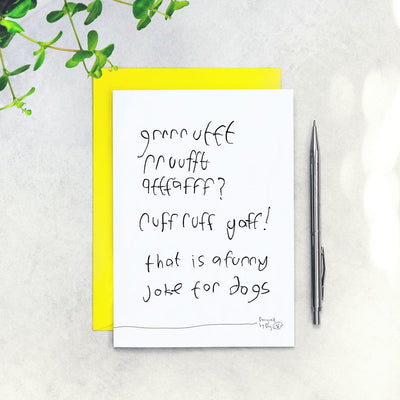 grrrr ufft
rruufft
afffafff?
ruff ruff yaff!
that is a funny
joke for dogs
Designed
by